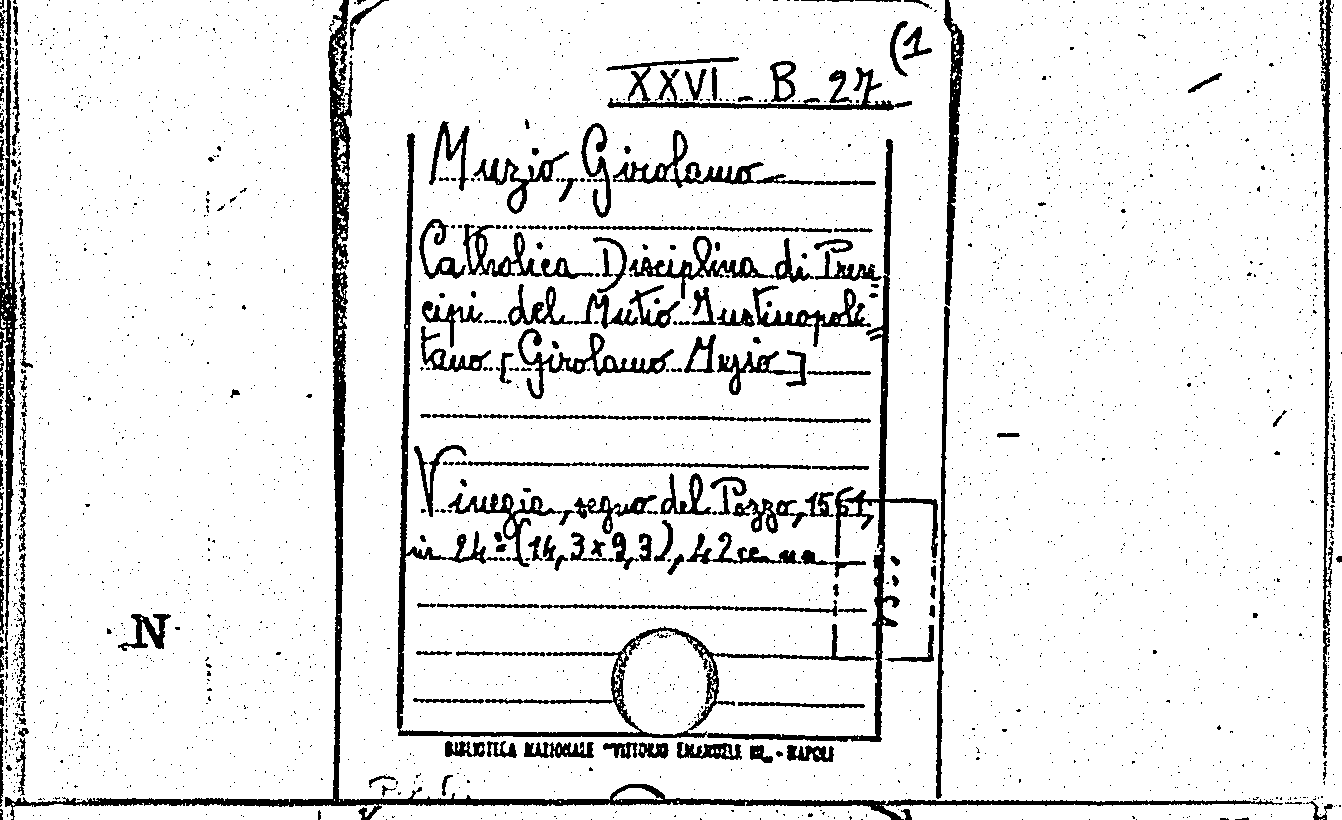 (1
XXVI_B_27
Muzio, Girolamo
Catholica Disciplina di Pren=
cipi del Mutio Iustinopoli=
tano [Girolamo Muzio]
Vinegia, segno del Pozzo, 1561,
in 24º (14,3x9,3), 42 cc. nn.
N
BIBLIOTECA NAZIONALE "VITTORIO EMANUELE III„ - NAPOLI